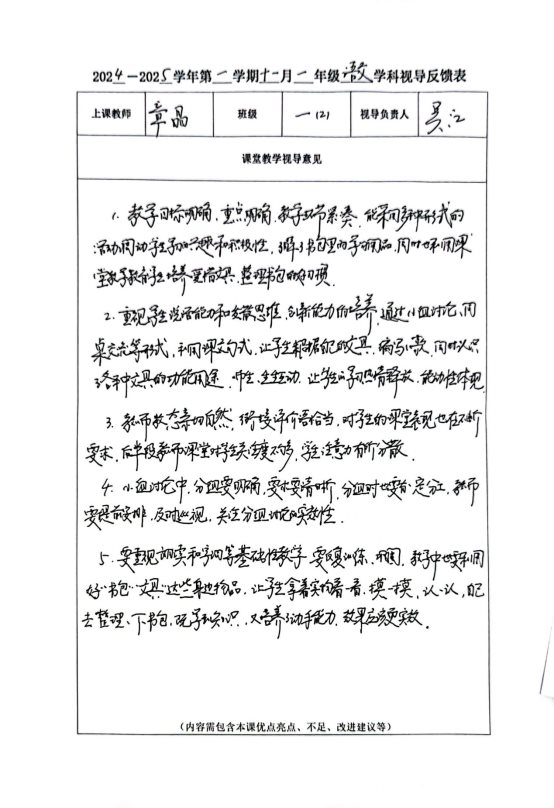 2024—2025学年第一学期十一月一年级语文学科视导反馈表
上课教师 章晶 班级 一(2) 视导负责人 吴江
课堂教学视导意见
1. 教学目标明确,重点明确,教学环节紧凑,能采用多种形式的
活动调动学生学习兴趣和积极性,了解了书包里的学习用品,同时利用课
堂教学教育学生培养爱惜文具、整理书包的好习惯。
2. 重视学生说话能力和发散思维、创新能力的培养,通过小组讨论、同
桌交流等形式,利用课文句式,让学生根据自己的文具,编写小歌,同时认识
了各种文具的功能用途,师生、生生互动,让学生的学习热情释放,能动性体现。
3. 教师教态亲切自然,衔接评价语恰当,对学生的课堂表现也在不断
要求,后半段教师课堂对学生关注度不多,学生注意力有所分散。
4. 小组讨论中,分组要明确,要求要清晰,分组时也要有定分工,教师
要提前安排,及时巡视,关注分组讨论的实效性。
5. 要重视朗读和字词等基础性教学,要反复训练、巩固,教学中也要利用
好“书包”“文具”这些身边物品,让学生拿着实物看一看、摸一摸、认一认,自己
去整理一下书包,既学到知识,又培养了动手能力,效果应该更实效。
(内容需包含本课优点亮点、不足、改进建议等)